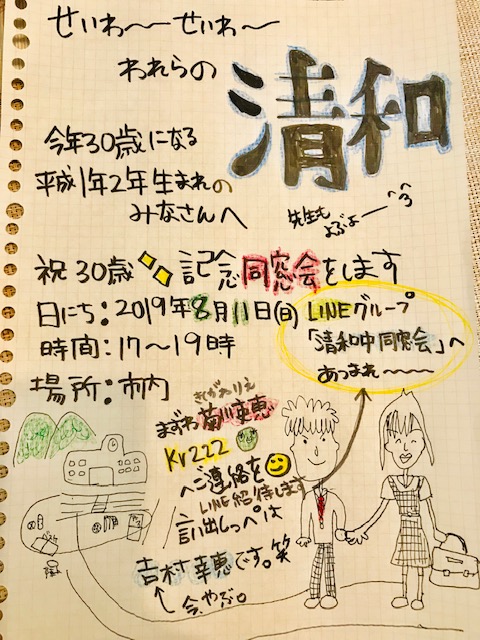 せいわ〜せいわ〜
われらの
清和
今年30歳になる
平成1年2年生まれの
みなさんへ
先生も
よぶよー^^
祝30歳 記念同窓会をします
日にち:2019年8月11日(日)
時間:17〜19時
場所:市内
LINEグループ
「清和中同窓会」へ
あつまれ〜〜
きくがわりえ
まずわ菊川
Kr222
へご連絡を
LINE招待します
言い出しっぺは
吉村幸恵です。笑
今、やぶ。